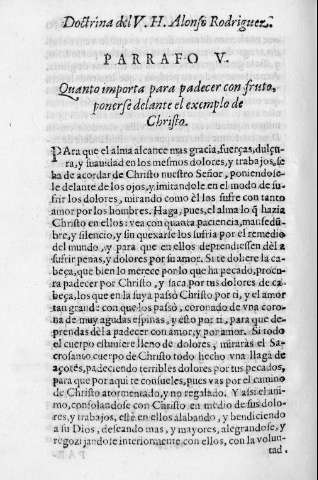 Doctrina del V. H. Alonso Rodriguez.
PARRAFO V.
Quanto importa para padecer con fruto,
ponerse delante el exemplo de
Christo.
PAra que el alma alcance mas gracia, fuerças, dulçu-
ra, y suauidad en los mesmos dolores, y trabajos, se
ha de acordar de Christo nuestro Señor, poniendose-
le delante de los ojos, y imitandole en el modo de su-
frir los dolores, mirando como èl los sufre con tanto
amor por los hombres. Haga, pues, el alma lo q̃ hazia
Christo en ellos: vea con quanta paciencia, mansedũ-
bre, y silencio, y sin quexarse los sufria por el remedio
del mundo, y para que en ellos deprendiessen del a
sufrir penas, y dolores por su amor. Si te doliere la ca-
beça, que bien lo merece por lo que ha pecado, procu-
ra padecer por Christo, y saca por tus dolores de ca-
beça, los que en la suya passò Christo por ti, y el amor
tan grande con que los passò, coronado de vna coro-
na de muy agudas espinas, y esto por ti, para que de-
prendas dèl a padecer con amor, y por amor. Si todo
el cuerpo estuuiere lleno de dolores, miraràs el Sa-
crosanto cuerpo de Christo todo hecho vna llaga de
açotes, padeciendo terribles dolores por tus pecados,
para que por aqui te consueles, pues vas por el camino
de Christo atormentado, y no regalado. Y assi el ani-
mo, consolandose con Christo en medio de sus dolo-
res, y trabajos, estè en ellos alabando, y bendiciendo
a su Dios, deseando mas, y mayores, alegrandose, y
regozijandose interiormente con ellos, con la volun-
tad